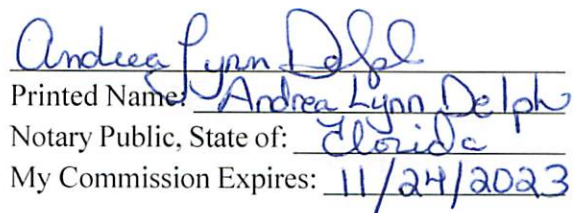 Andrea Lynn Delph
Printed Name: Andrea Lynn Delph
Notary Public, State of: Florida
My Commission Expires: 11/24/2023